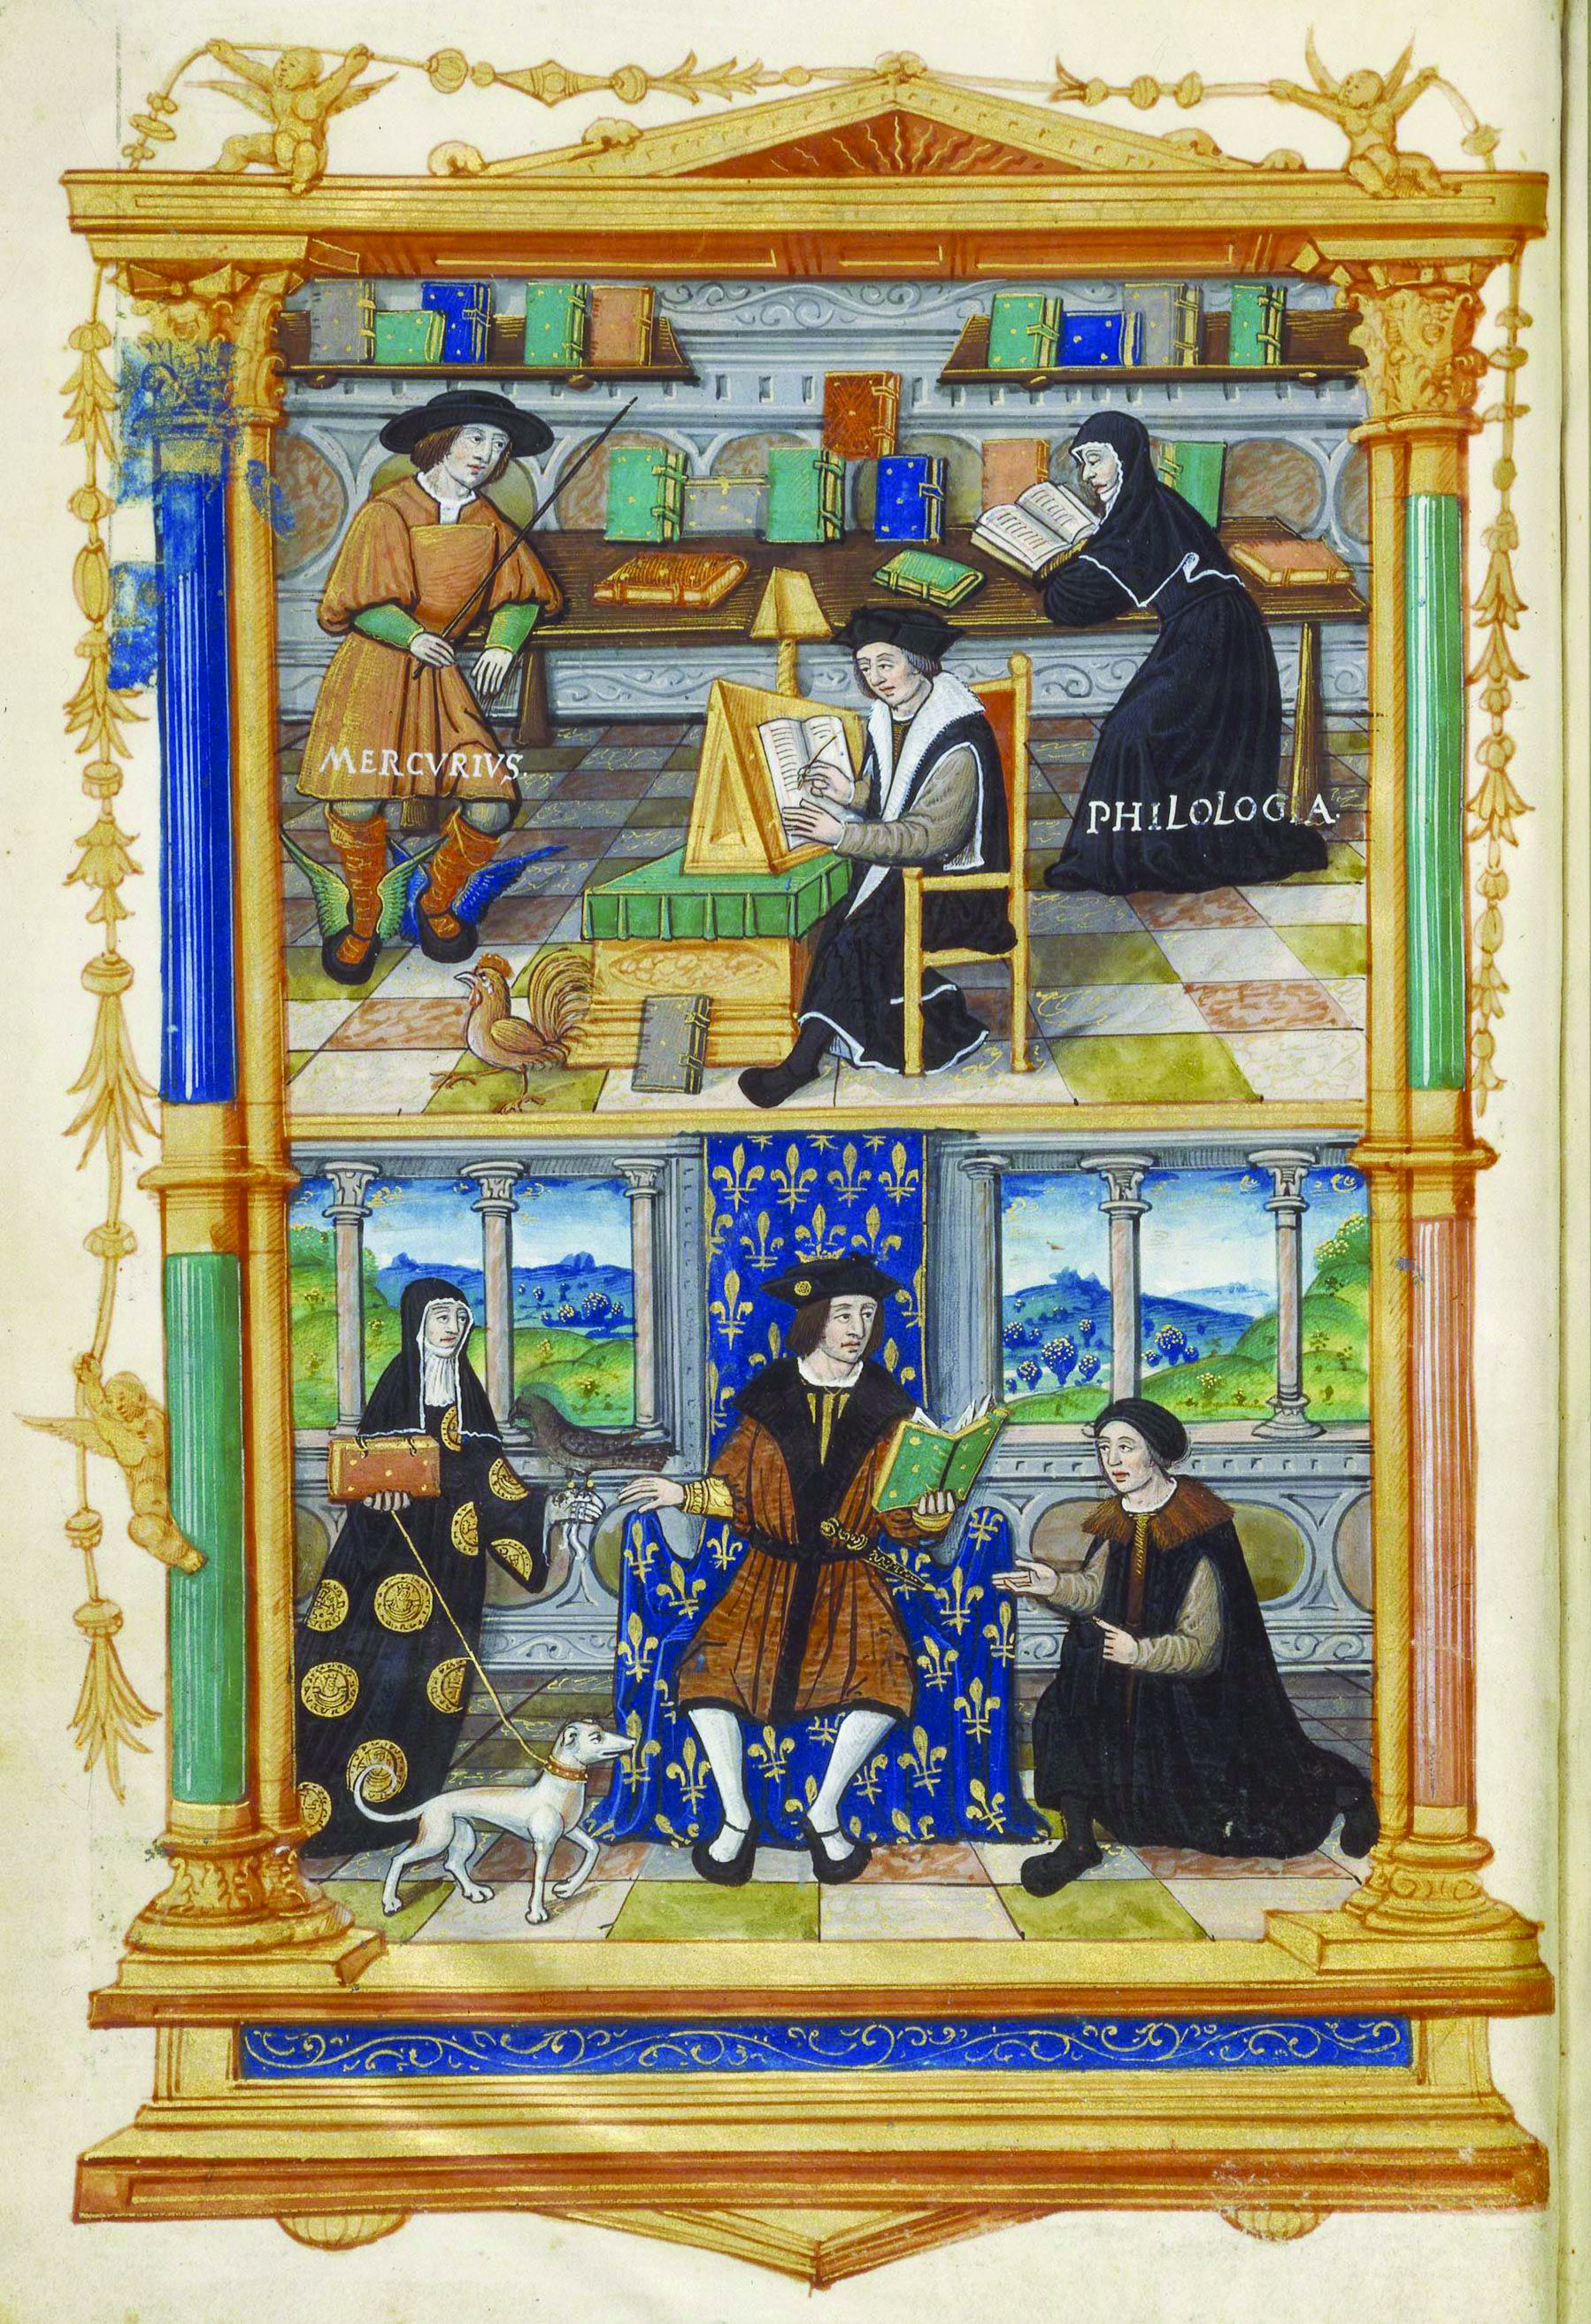 MERCVRIVS.
PHILOLOGIA.